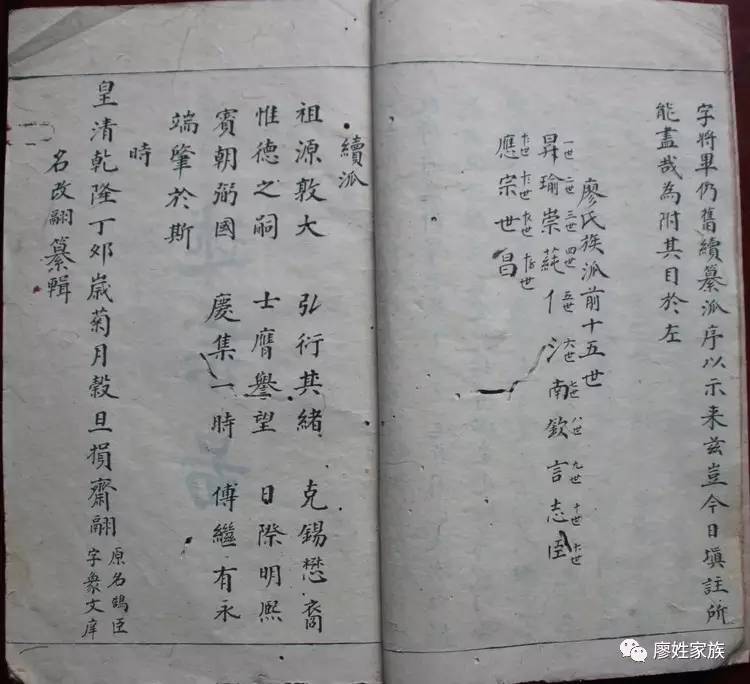 字將畢仍舊續纂派序以示来兹豈今日填註所
能盡哉為附其目於左
廖氏族派前十五世
一世 二世 三世 四世 五世 六世 七世 八世 九世 十世 十一世
昇瑜崇莼仁南欽言志臣
十二世 十三世 十四世 十五世
應宗世昌
續派
祖源敦大 弘衍其緒 克錫懋裔
惟德之嗣 士膺譽望 日際明熈
賓朝弼國 慶集一時 傅繼有永
端肇於斯
時
皇清乾隆丁夘歲菊月穀旦損齋翮
原名臣
字衆文庠
名改翮纂輯
廖姓家族